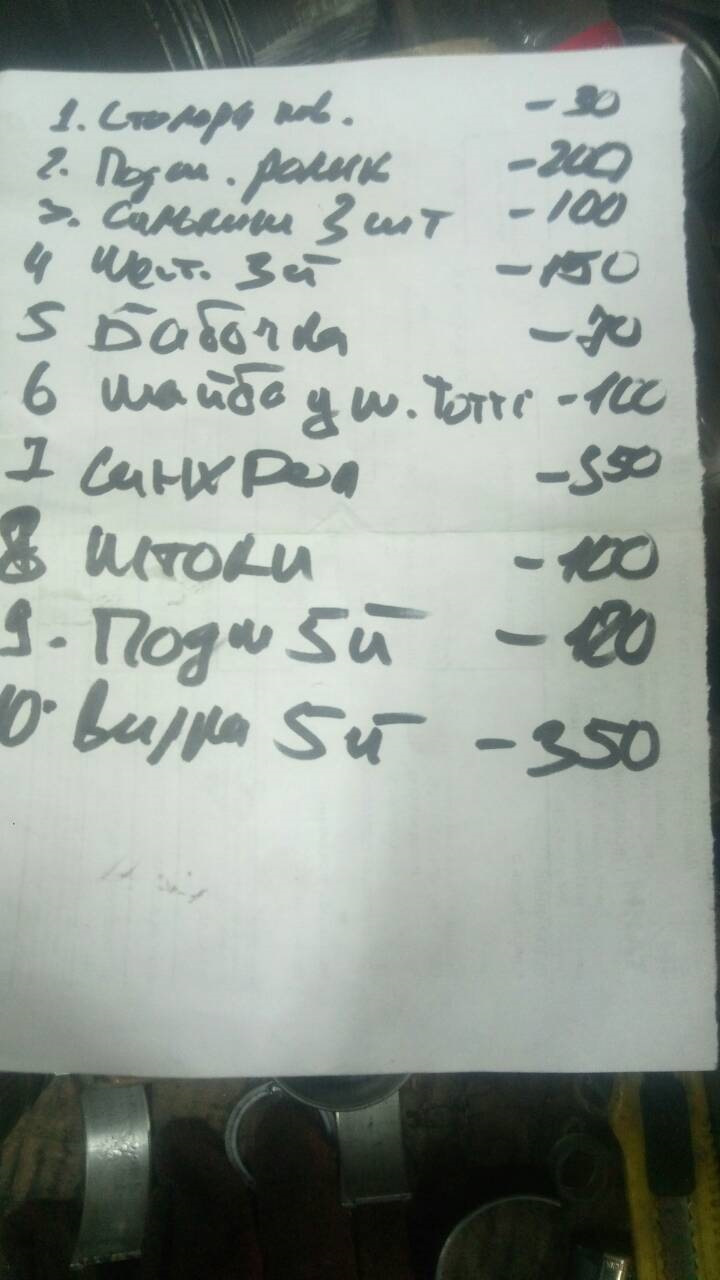 1. Стопора пов. - 30
2. Подш. ролик - 200
3. Сальники 3 шт - 100
4 Шест. 3й - 150
5 Бабочка - 70
6 шайба у ш. - 100
7 Синхрон - 350
8 штоки - 100
9. Подш 5й - 120
10. Вилка 5й - 350